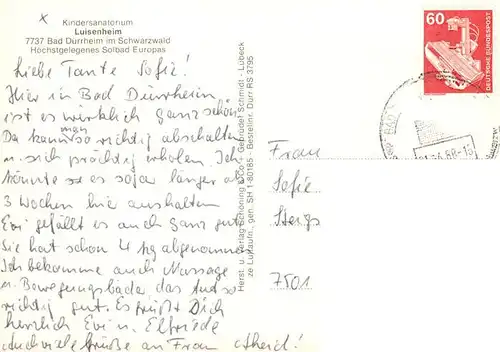 Kindersanatorium
Luisenheim
7737 Bad Dürrheim im Schwarzwald
Höchstgelegenes Solbad Europas
Liebe Tante Sofie!
Hier in Bad Dürrheim
ist es wirklich ganz schön
Da kann man so richtig abschalten
u. sich prächtig erholen. Ich
könnte es sogar länger als
3 Wochen hier aushalten
Evi gefällt es auch ganz gut
Sie hat schon 4 kg abgenommen
Ich bekomme auch Massage
u. Bewegungsbäder das tut so
richtig gut. Es grüßt Dich
herzlich Evi u. Elfriede
Auch viele Grüße an Frau
Herst. u. Verlag Schöning & Co + Gebrüder Schmidt - Lübeck
ze Luftaufn. gen. SH 1-80185 - Bestellnr. Dürr RS 3795
60
DEUTSCHE BUNDESPOST
Frau
Sofie
7501